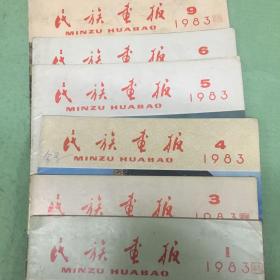 民族画报 9
MINZU HUABAO 1983
民族画报 6
MINZU HUABAO 1983
民族画报 5
MINZU HUABAO 1983
民族画报 4
MINZU HUABAO 1983
民族画报 3
MINZU HUABAO 1983
民族画报 1
MINZU HUABAO 1983